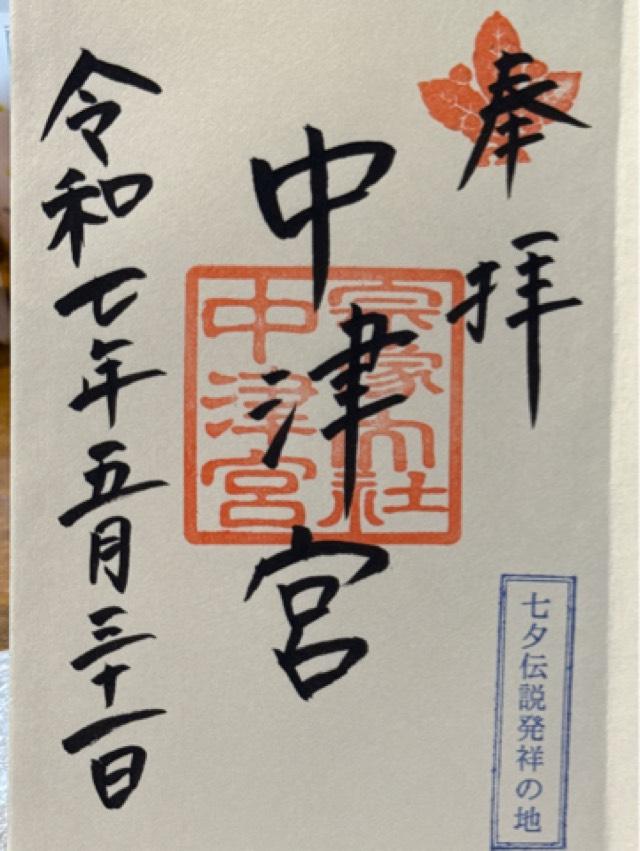 奉拝
中津宮
宗像大社
中津宮
令和七年五月三十一日
七夕伝説発祥の地